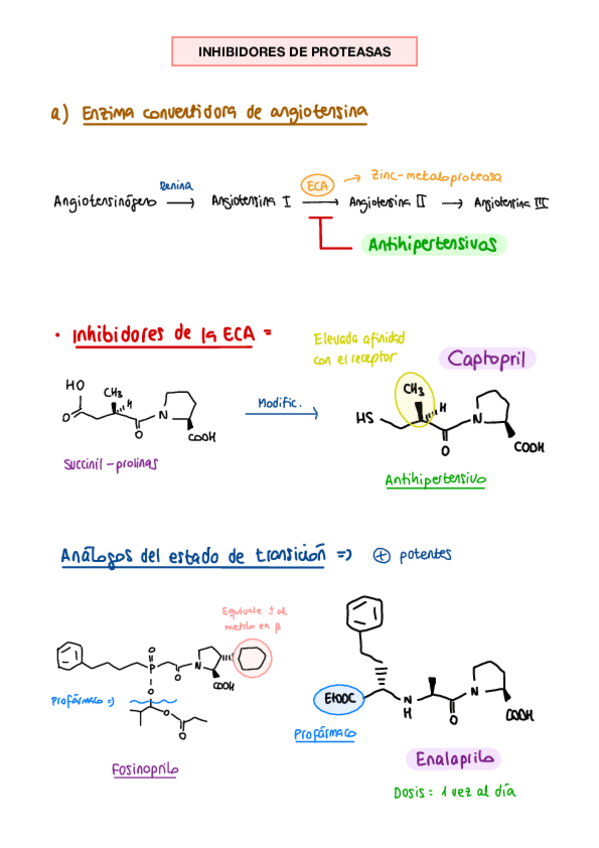 INHIBIDORES DE PROTEASAS
a) Enzima convertidora de angiotensina
Angiotensinógeno
Renina
Angiotensina I
ECA
Zinc-metaloproteasa
Angiotensina II
Angiotensina III
Antihipertensivos
• Inhibidores de la ECA =
Elevada afinidad
con el receptor
Captopril
HO
O
CH3
H
N
O
COOH
Modific.
HS
CH3
H
N
O
COOH
Succinil-prolinas
Antihipertensivo
Análogos del estado de transición => + potentes
Equivale ± al
metilo en β
O
P
O
N
COOH
O
O
O
Profármaco =)
Fosinoprilo
EtOOC
N
H
O
N
COOH
Profármaco
Enalaprilo
Dosis = 1 vez al día